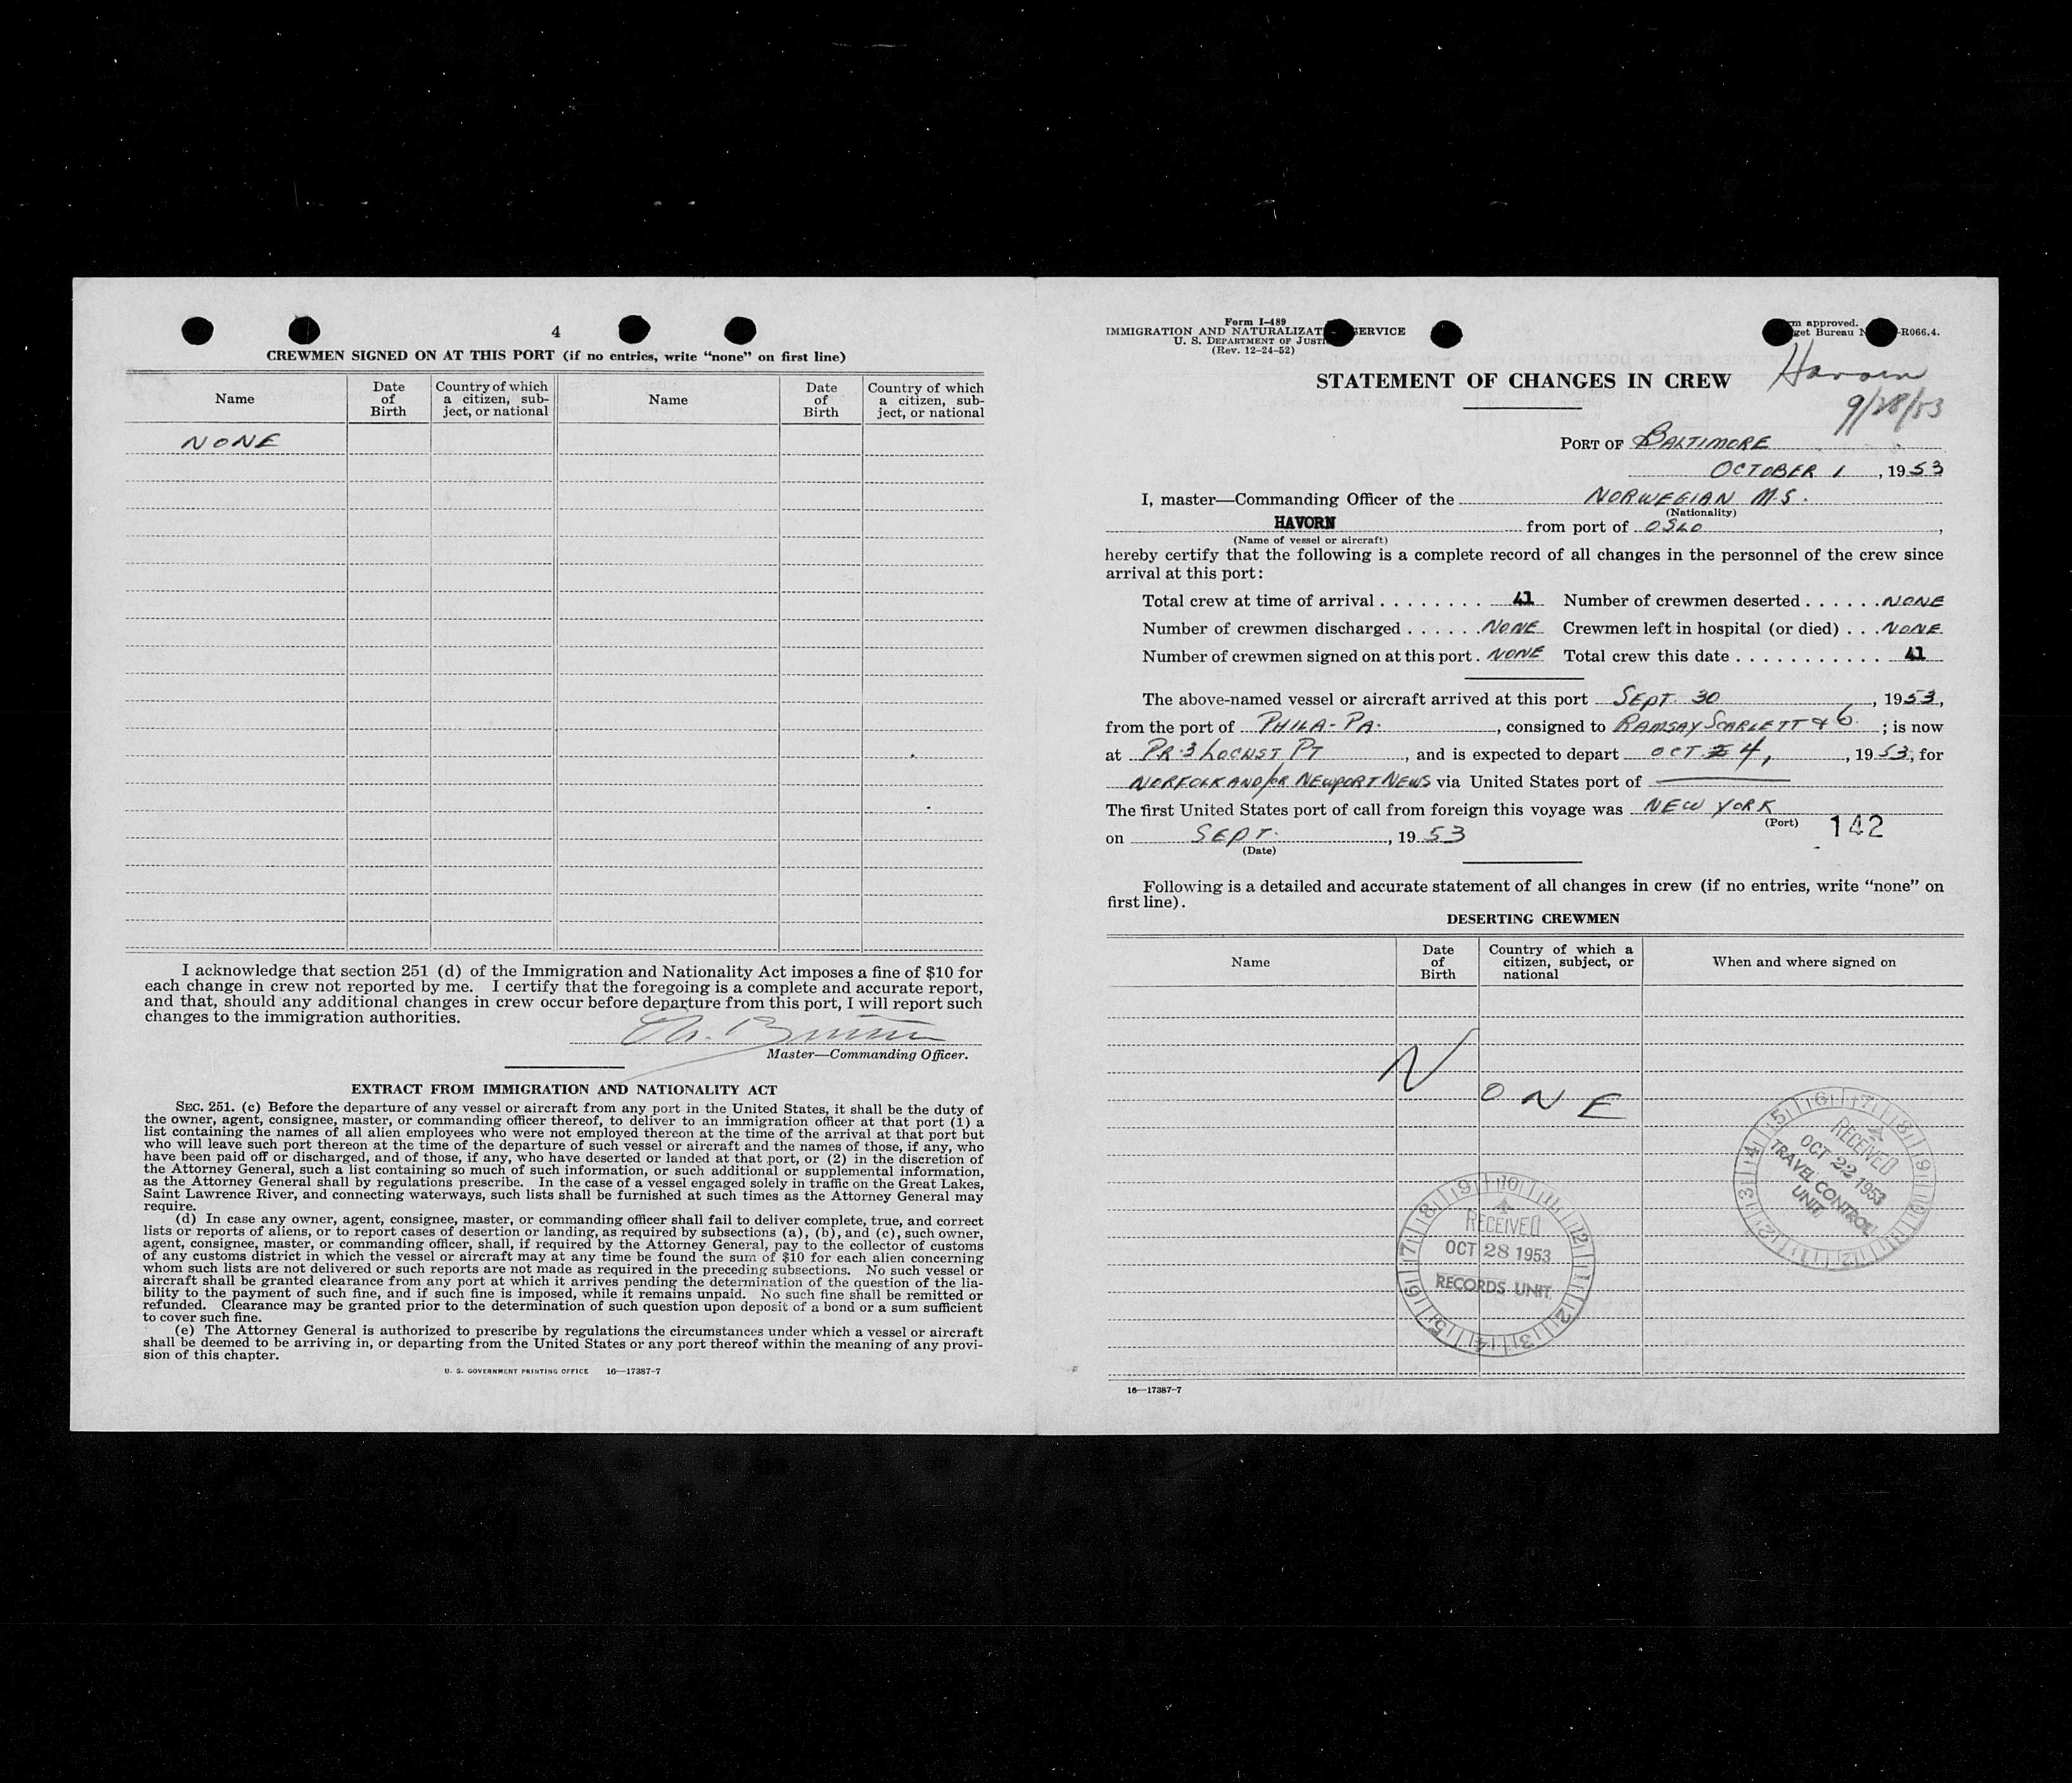 4
CREWMEN SIGNED ON AT THIS PORT (if no entries, write “none” on first line)
Name
Date of Birth
Country of which a citizen, subject, or national
Name
Date of Birth
Country of which a citizen, subject, or national
NONE
I acknowledge that section 251 (d) of the Immigration and Nationality Act imposes a fine of $10 for
each change in crew not reported by me. I certify that the foregoing is a complete and accurate report,
and that, should any additional changes in crew occur before departure from this port, I will report such
changes to the immigration authorities.
Master—Commanding Officer.
EXTRACT FROM IMMIGRATION AND NATIONALITY ACT
SEC. 251. (c) Before the departure of any vessel or aircraft from any port in the United States, it shall be the duty of
the owner, agent, consignee, master, or commanding officer thereof, to deliver to an immigration officer at that port (1) a
list containing the names of all alien employees who were not employed thereon at the time of the arrival at that port but
who will leave such port thereon at the time of the departure of such vessel or aircraft and the names of those, if any, who
have been paid off or discharged, and of those, if any, who have deserted or landed at that port, or (2) in the discretion of
the Attorney General, such a list containing so much of such information, or such additional or supplemental information,
as the Attorney General shall by regulations prescribe. In the case of a vessel engaged solely in traffic on the Great Lakes,
Saint Lawrence River, and connecting waterways, such lists shall be furnished at such times as the Attorney General may
require.
(d) In case any owner, agent, consignee, master, or commanding officer shall fail to deliver complete, true, and correct
lists or reports of aliens, or to report cases of desertion or landing, as required by subsections (a), (b), and (c), such owner,
agent, consignee, master, or commanding officer, shall, if required by the Attorney General, pay to the collector of customs
of any customs district in which the vessel or aircraft may at any time be found the sum of $10 for each alien concerning
whom such lists are not delivered or such reports are not made as required in the preceding subsections. No such vessel or
aircraft shall be granted clearance from any port at which it arrives pending the determination of the question of the lia-
bility to the payment of such fine, and if such fine is imposed, while it remains unpaid. No such fine shall be remitted or
refunded. Clearance may be granted prior to the determination of such question upon deposit of a bond or a sum sufficient
to cover such fine.
(e) The Attorney General is authorized to prescribe by regulations the circumstances under which a vessel or aircraft
shall be deemed to be arriving in, or departing from the United States or any port thereof within the meaning of any provi-
sion of this chapter.
U. S. GOVERNMENT PRINTING OFFICE 16—17387-7
Form I-489
IMMIGRATION AND NATURALIZAT ERVICE
U. S. DEPARTMENT OF JUSTI
(Rev. 12-24-52)
m approved.
get Bureau N -R066.4.
Havorn
9/28/53
STATEMENT OF CHANGES IN CREW
PORT OF BALTIMORE
OCTOBER 1, 1953
I, master—Commanding Officer of the NORWEGIAN M.S.
(Nationality)
HAVORN from port of OSLO,
(Name of vessel or aircraft)
hereby certify that the following is a complete record of all changes in the personnel of the crew since
arrival at this port:
Total crew at time of arrival . . . . . . . . 41 Number of crewmen deserted . . . . . . NONE
Number of crewmen discharged . . . . . . NONE Crewmen left in hospital (or died) . . . NONE
Number of crewmen signed on at this port . NONE Total crew this date . . . . . . . . . . . . 41
The above-named vessel or aircraft arrived at this port SEPT. 30, 1953,
from the port of PHILA-PA., consigned to RAMSAY SCARLETT & Co.; is now
at PR·3 LOCUST PT, and is expected to depart OCT 4, 1953, for
NORFOLK AND/OR NEWPORT NEWS via United States port of
The first United States port of call from foreign this voyage was NEW YORK
(Port) 142
on SEPT., 1953
(Date)
Following is a detailed and accurate statement of all changes in crew (if no entries, write “none” on
first line).
DESERTING CREWMEN
Name
Date of Birth
Country of which a citizen, subject, or national
When and where signed on
NONE
RECEIVED
OCT 22 1953
TRAVEL CONTROL
UNIT
RECEIVED
OCT 28 1953
RECORDS UNIT
16—17387-7